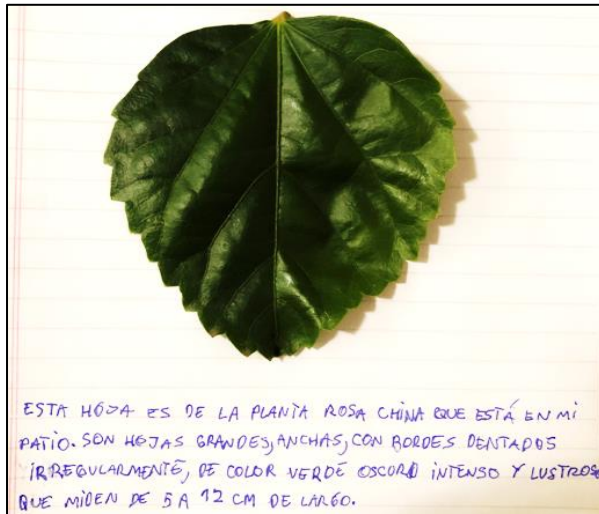 ESTA HOJA ES DE LA PLANTA ROSA CHINA QUE ESTÁ EN MI
PATIO. SON HOJAS GRANDES, ANCHAS, CON BORDES DENTADOS
IRREGULARMENTE, DE COLOR VERDE OSCURO INTENSO Y LUSTROSO
QUE MIDEN DE 5 A 12 CM DE LARGO.